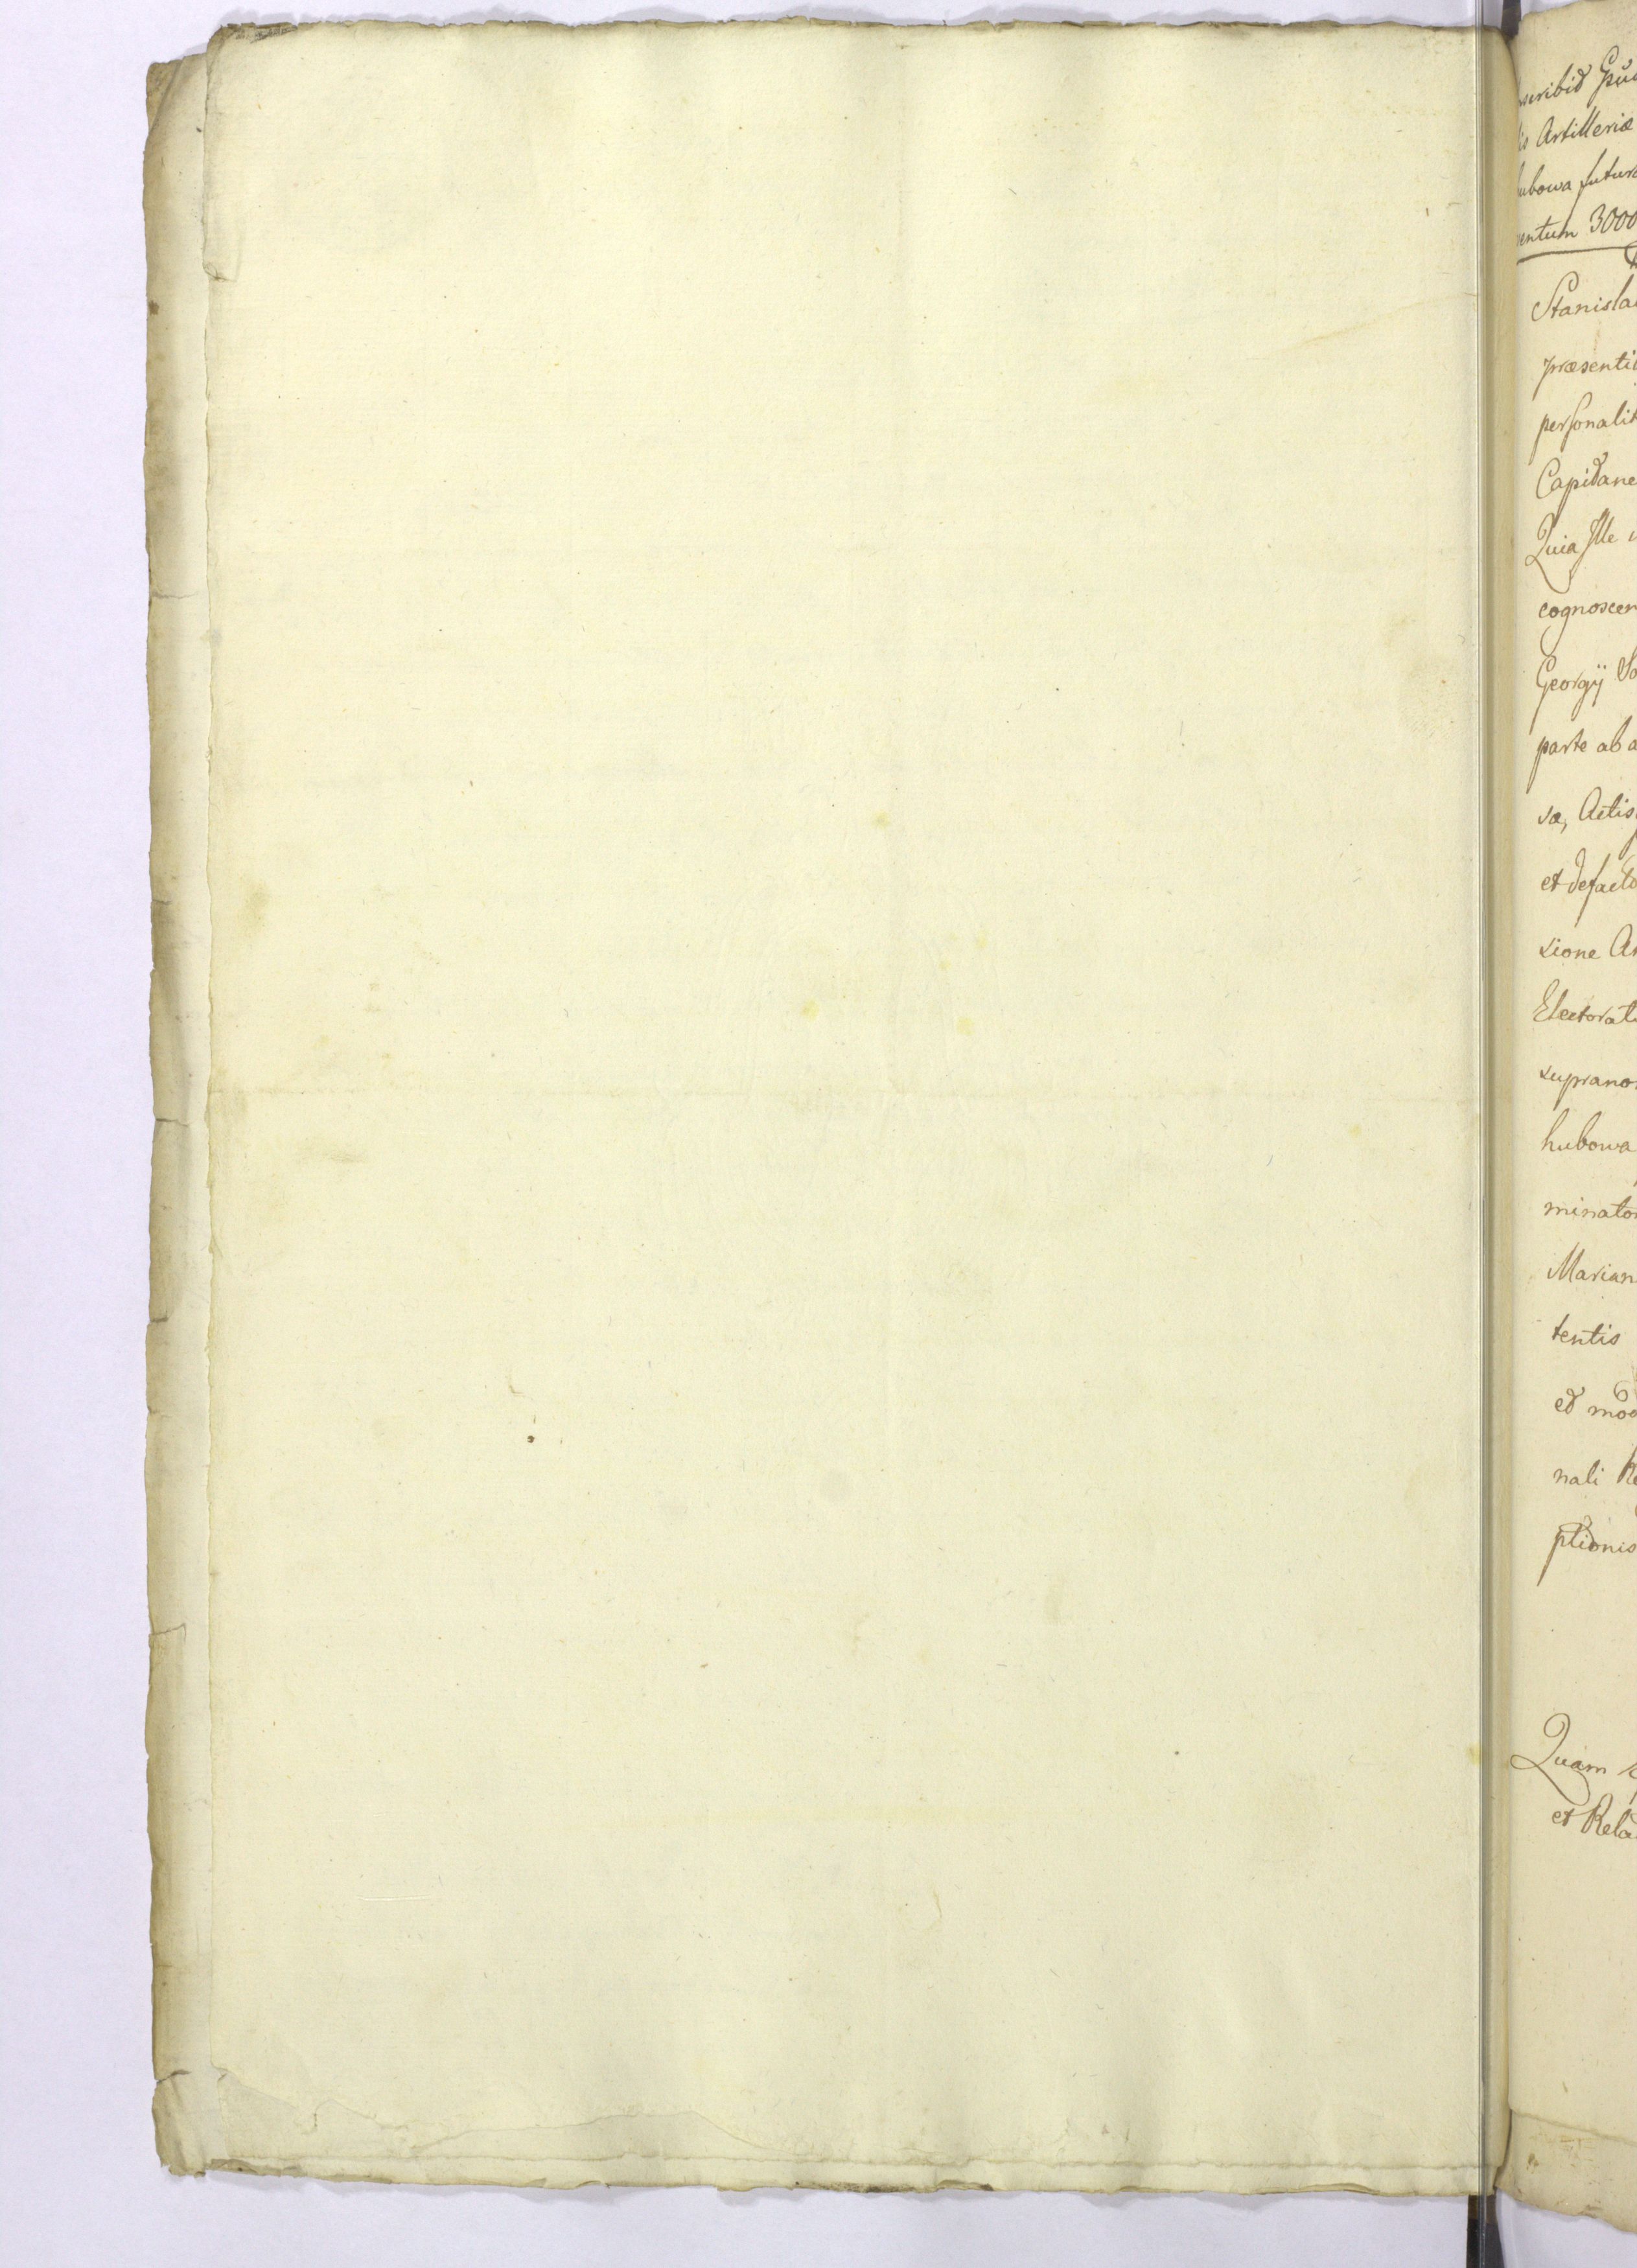 is Artilleriæ
entum 3000
Stanisla
præsenti
personalit
Capitane
Quia Ille
cognoscen
Georgij
parte ab a
sa, Actis
et defacto
sione
Electorat
suprano
hubowa
minato
Marian
tentis
et mod
nali
ptionis
Quam
et Rela